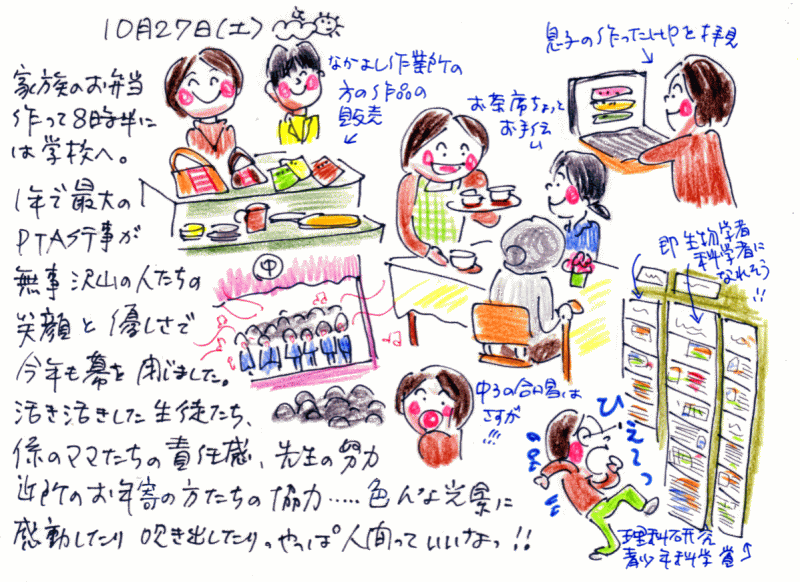 10月27日(土)
家族のお弁当
作って8時半に
は学校へ。
1年で最大の
PTA行事が
無事 沢山の人たちの
笑顔と優しさで
今年も幕を閉じました。
活き活きした生徒たち、
係のママたちの責任感、先生の努力
近所のお年寄の方たちの協力.....色んな光景に
感動したり 吹き出したり。やっぱ人間っていいなっ!!
なかよし作業所の
方の作品の
販売
お茶席ちょっと
お手伝い
息子の作ったHPを拝見
中
中3の合唱は
さすが
!!!
即 生物学者
科学者に
なれそう
!!
ひぇ〜っ
理科研究
青少年科学賞